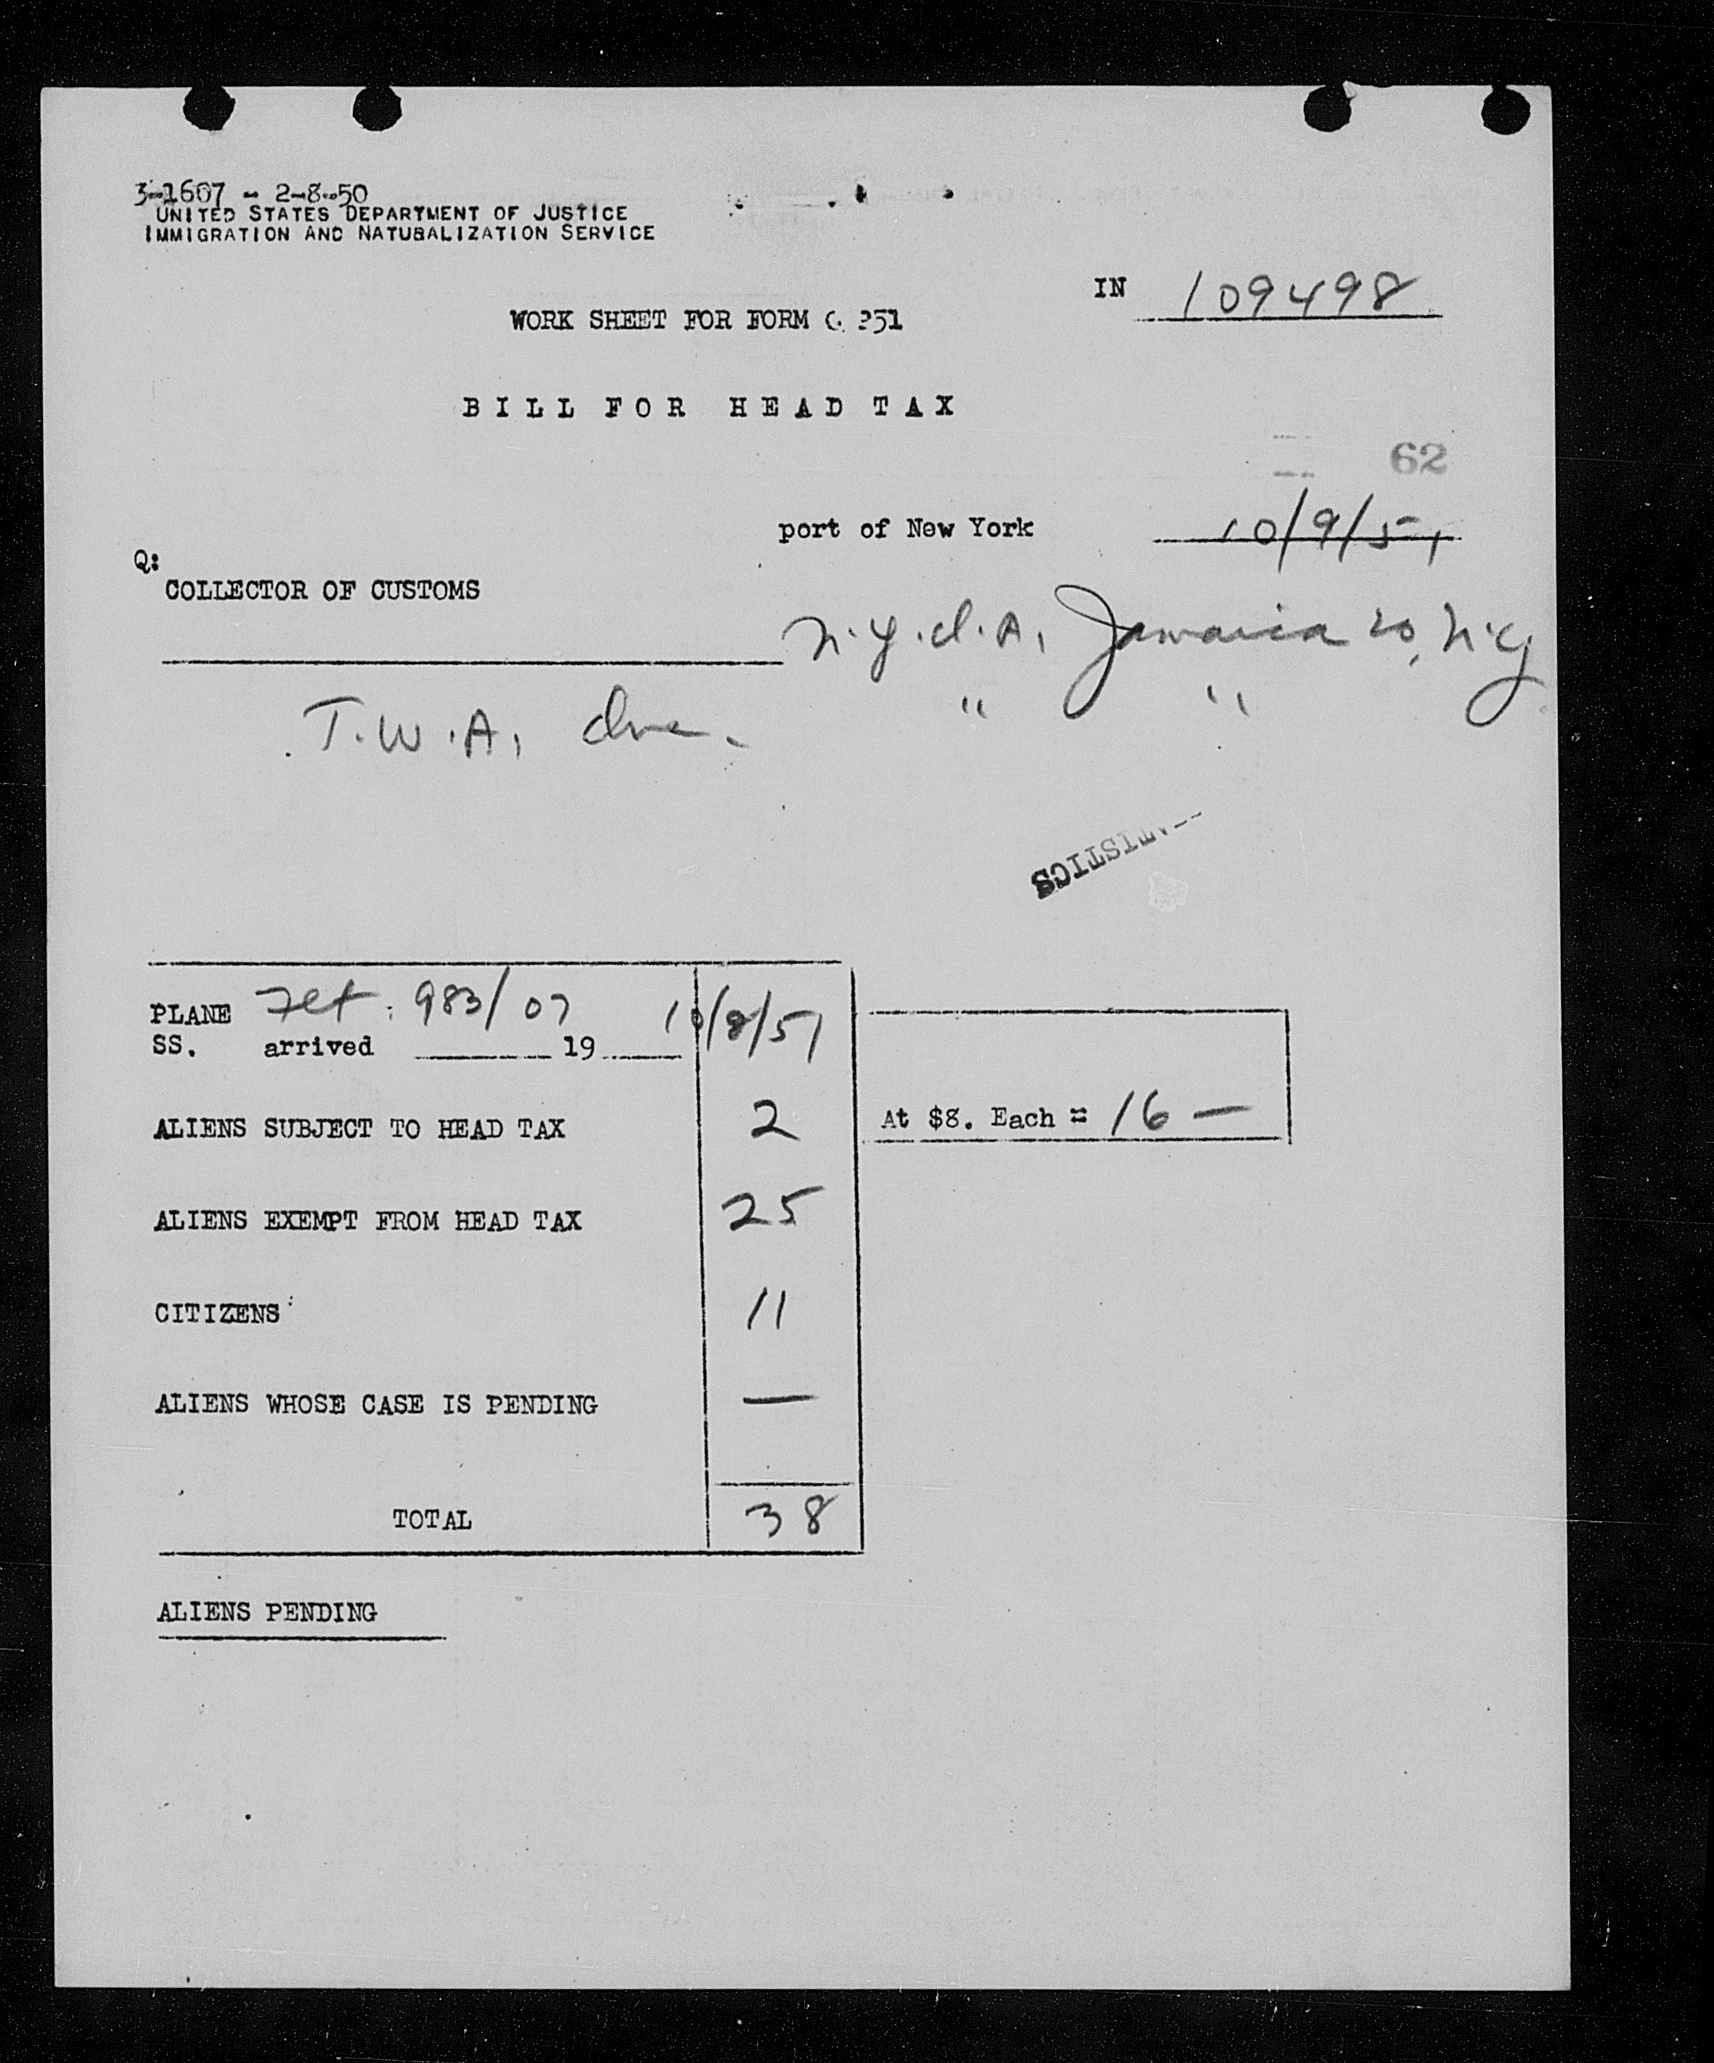 3-1607 - 2-8-50
UNITED STATES DEPARTMENT OF JUSTICE
IMMIGRATION AND NATURALIZATION SERVICE
IN 109498
WORK SHEET FOR FORM G 251
BILL FOR HEAD TAX
62
port of New York 10/9/51
Q:
COLLECTOR OF CUSTOMS
N.Y.I.A. Jamaica 20, N.Y
T.W.A, Inc. " "
STATISTICS
PLANE Flt: 983/07 10/8/51
SS. arrived 19
ALIENS SUBJECT TO HEAD TAX 2 At $8. Each = 16 —
ALIENS EXEMPT FROM HEAD TAX 25
CITIZENS 11
ALIENS WHOSE CASE IS PENDING —
TOTAL 38
ALIENS PENDING